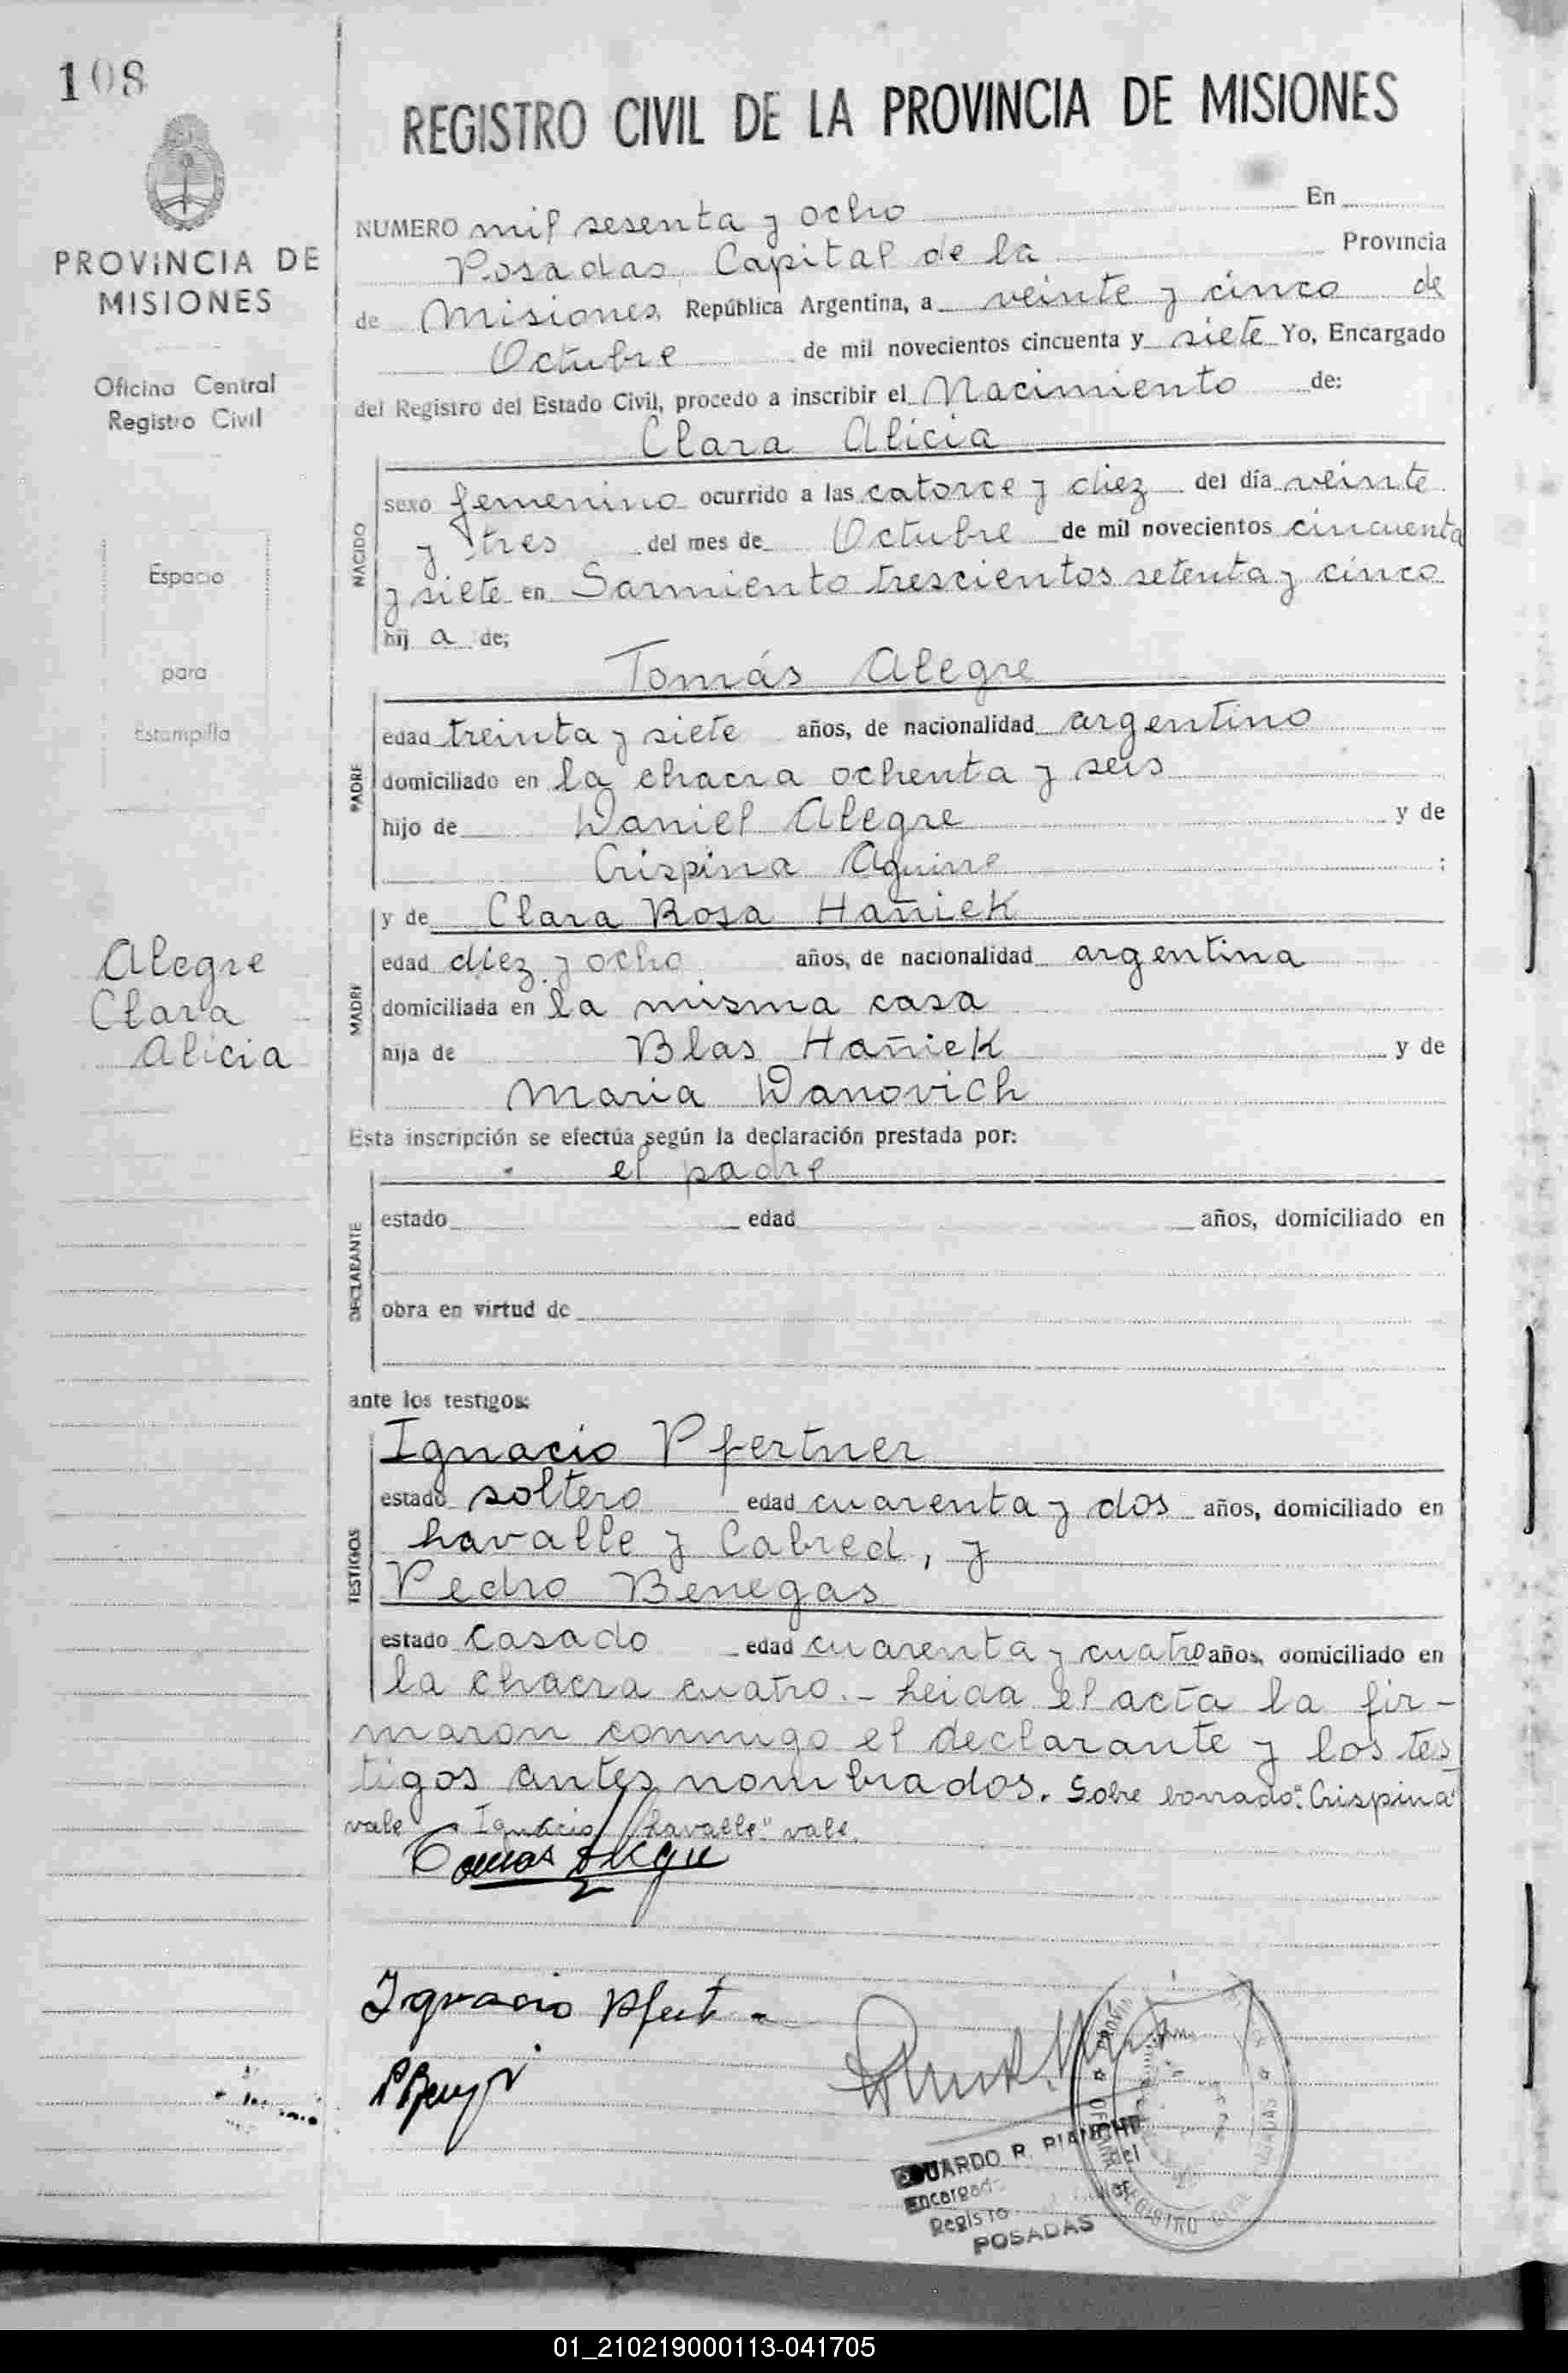 108
PROVINCIA DE
MISIONES
Oficina Central
Registro Civil
Espacio
para
Estampilla
Alegre
Clara
Alicia
REGISTRO CIVIL DE LA PROVINCIA DE MISIONES
NUMERO mil sesenta y ocho En
Posadas, Capital de la Provincia
de Misiones, República Argentina, a veinte y cinco de
Octubre de mil novecientos cincuenta y siete Yo, Encargado
del Registro del Estado Civil, procedo a inscribir el Nacimiento de:
Clara Alicia
NACIDO
sexo femenino ocurrido a las catorce y diez del día veinte
y tres del mes de Octubre de mil novecientos cincuenta
y siete en Sarmiento trescientos setenta y cinco
hij a de;
Tomás Alegre
PADRE
edad treinta y siete años, de nacionalidad argentino
domiciliado en la chacra ochenta y seis
hijo de Daniel Alegre y de
Crispina Aguirre :
MADRE
y de Clara Rosa Hañiek
edad diez y ocho años, de nacionalidad argentina
domiciliada en la misma casa
hija de Blas Hañiek y de
Maria Danovich
Esta inscripción se efectúa según la declaración prestada por:
el padre
DECLARANTE
estado edad años, domiciliado en
obra en virtud de
ante los testigos:
TESTIGOS
Ignacio Pfertner
estado soltero edad cuarenta y dos años, domiciliado en
Lavalle y Cabred, y
Pedro Benegas
estado casado edad cuarenta y cuatro años, domiciliado en
la chacra cuatro.- Leida el acta la fir-
maron conmigo el declarante y los tes
tigos antes nombrados. Sobre borrado: "Crispina"
vale Ignacio "Lavalle" vale.
Tomas Alegre
Ignacio
EDUARDO R. PIANCHI
Encargado del
Registro Civil
POSADAS
01_210219000113-041705